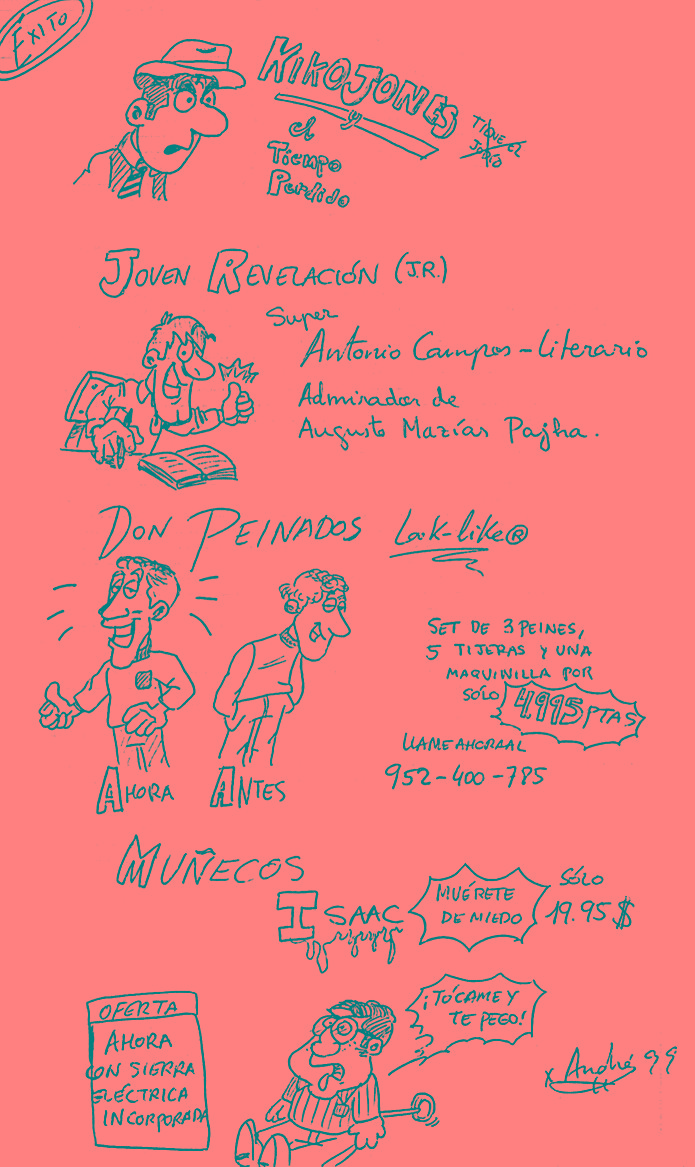 ÉXITO
KIKO JONES
y
el
Tiempo
Perdido
JOVEN REVELACIÓN (J.R.)
Super
Antonio Campos-Literario
Admirador de
Augusto Mazías Pajha.
DON PEINADOS Look-like®
SET DE 3 PEINES,
5 TIJERAS Y UNA
MAQUINILLA POR
SÓLO 4.995 PTAS
LLAME AHORA AL
952-400-785
AHORA ANTES
MUÑECOS
ISAAC
MUÉRETE
DE MIEDO
SÓLO
19.95 $
¡TÓCAME Y
TE PEGO!
OFERTA
AHORA
CON SIERRA
ELÉCTRICA
INCORPORADA
x Andrés 99